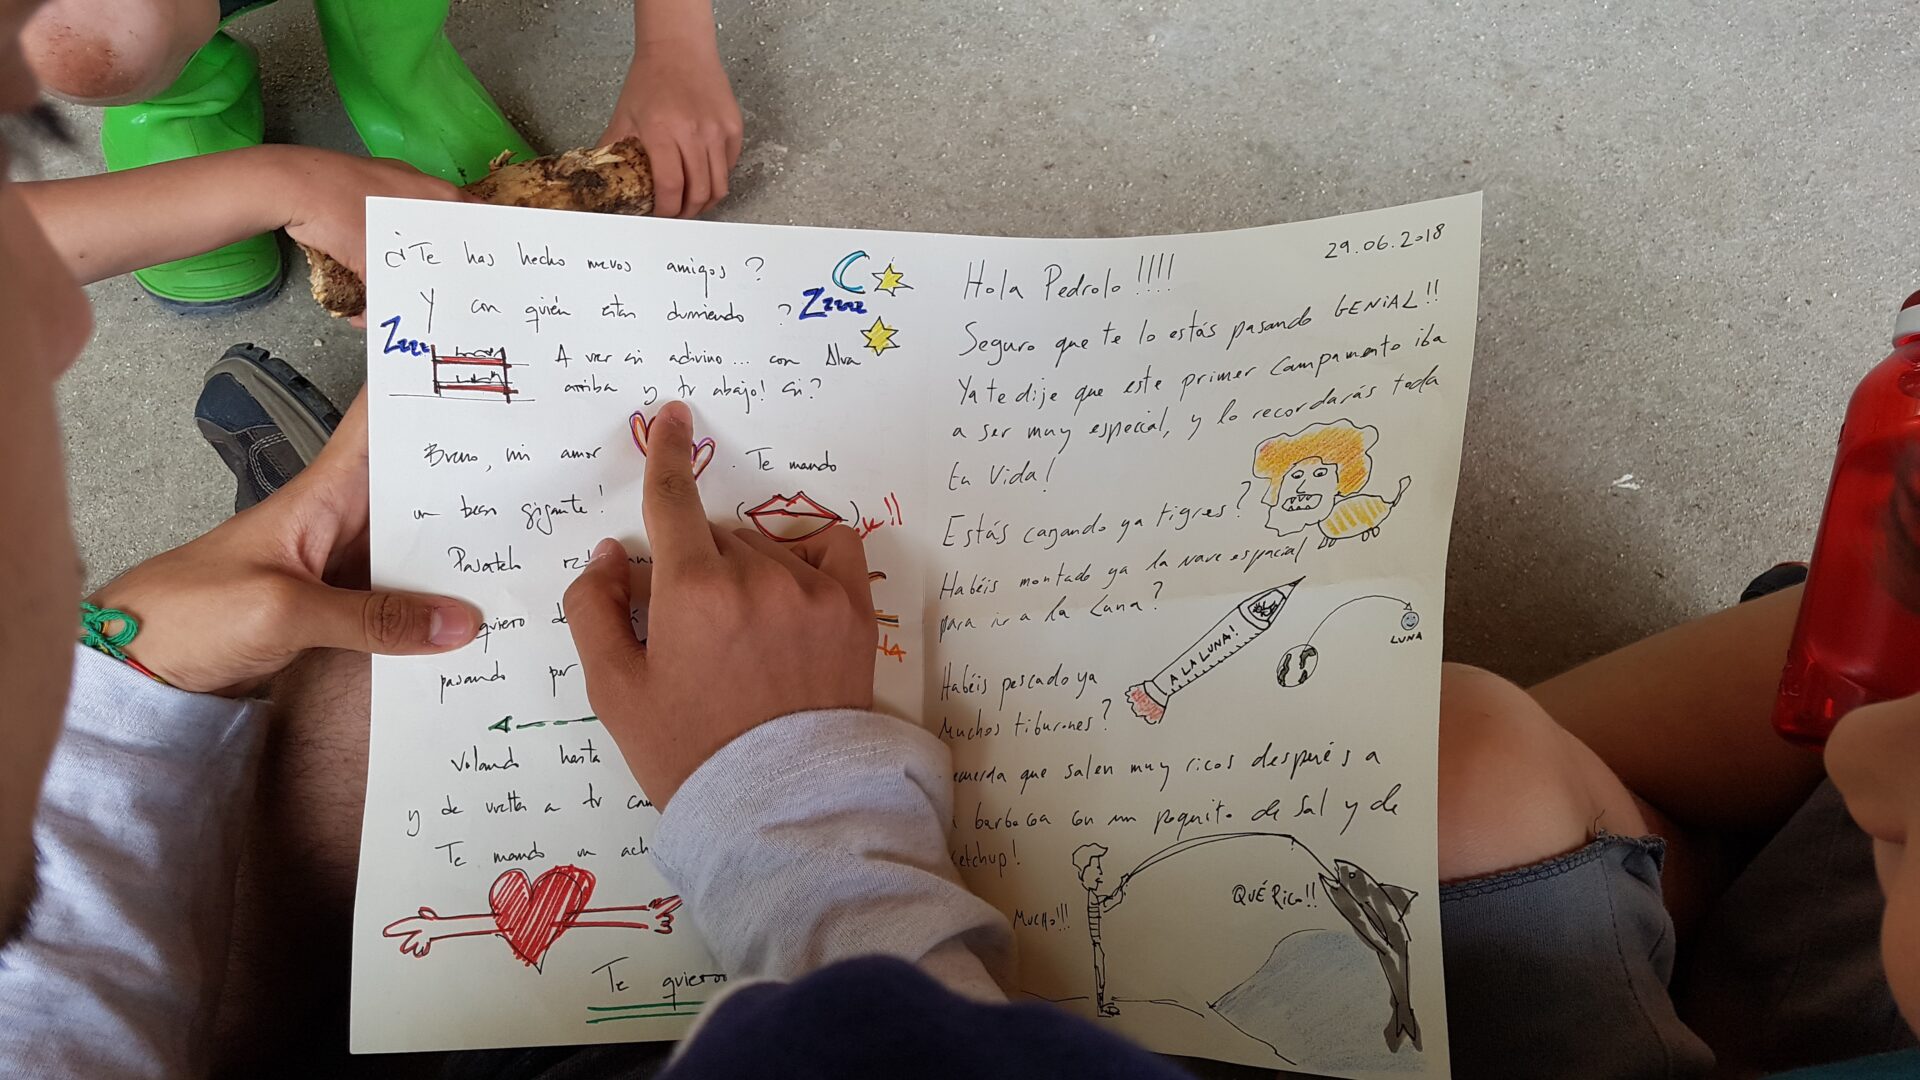 ¿Te has hecho nuevos amigos?
Y con quién estas durmiendo?
Zzzzz
Zzzz
A ver si adivino... con Alva
arriba y tu abajo! si?
Bueno, mi amor
. Te mando
un beso gigante!
quiero
pasando por
Volando hasta
y de vuelta a tu
Te mando un
Te quieroo
29.06.2018
Hola Pedrolo!!!!
Seguro que te lo estás pasando GENIAL!!
Ya te dije que este primer campamento iba
a ser muy especial, y lo recordarás toda
tu vida!
Estás cazando ya tigres?
Habéis montado ya la nave espacial
para ir a la Luna?
A LA LUNA!
LUNA
Habéis pescado ya
muchos tiburones?
que salen muy ricos después a
barbacoa con un poquito de sal y de
ketchup!
MUCHO!!!
QUÉ RICO!!